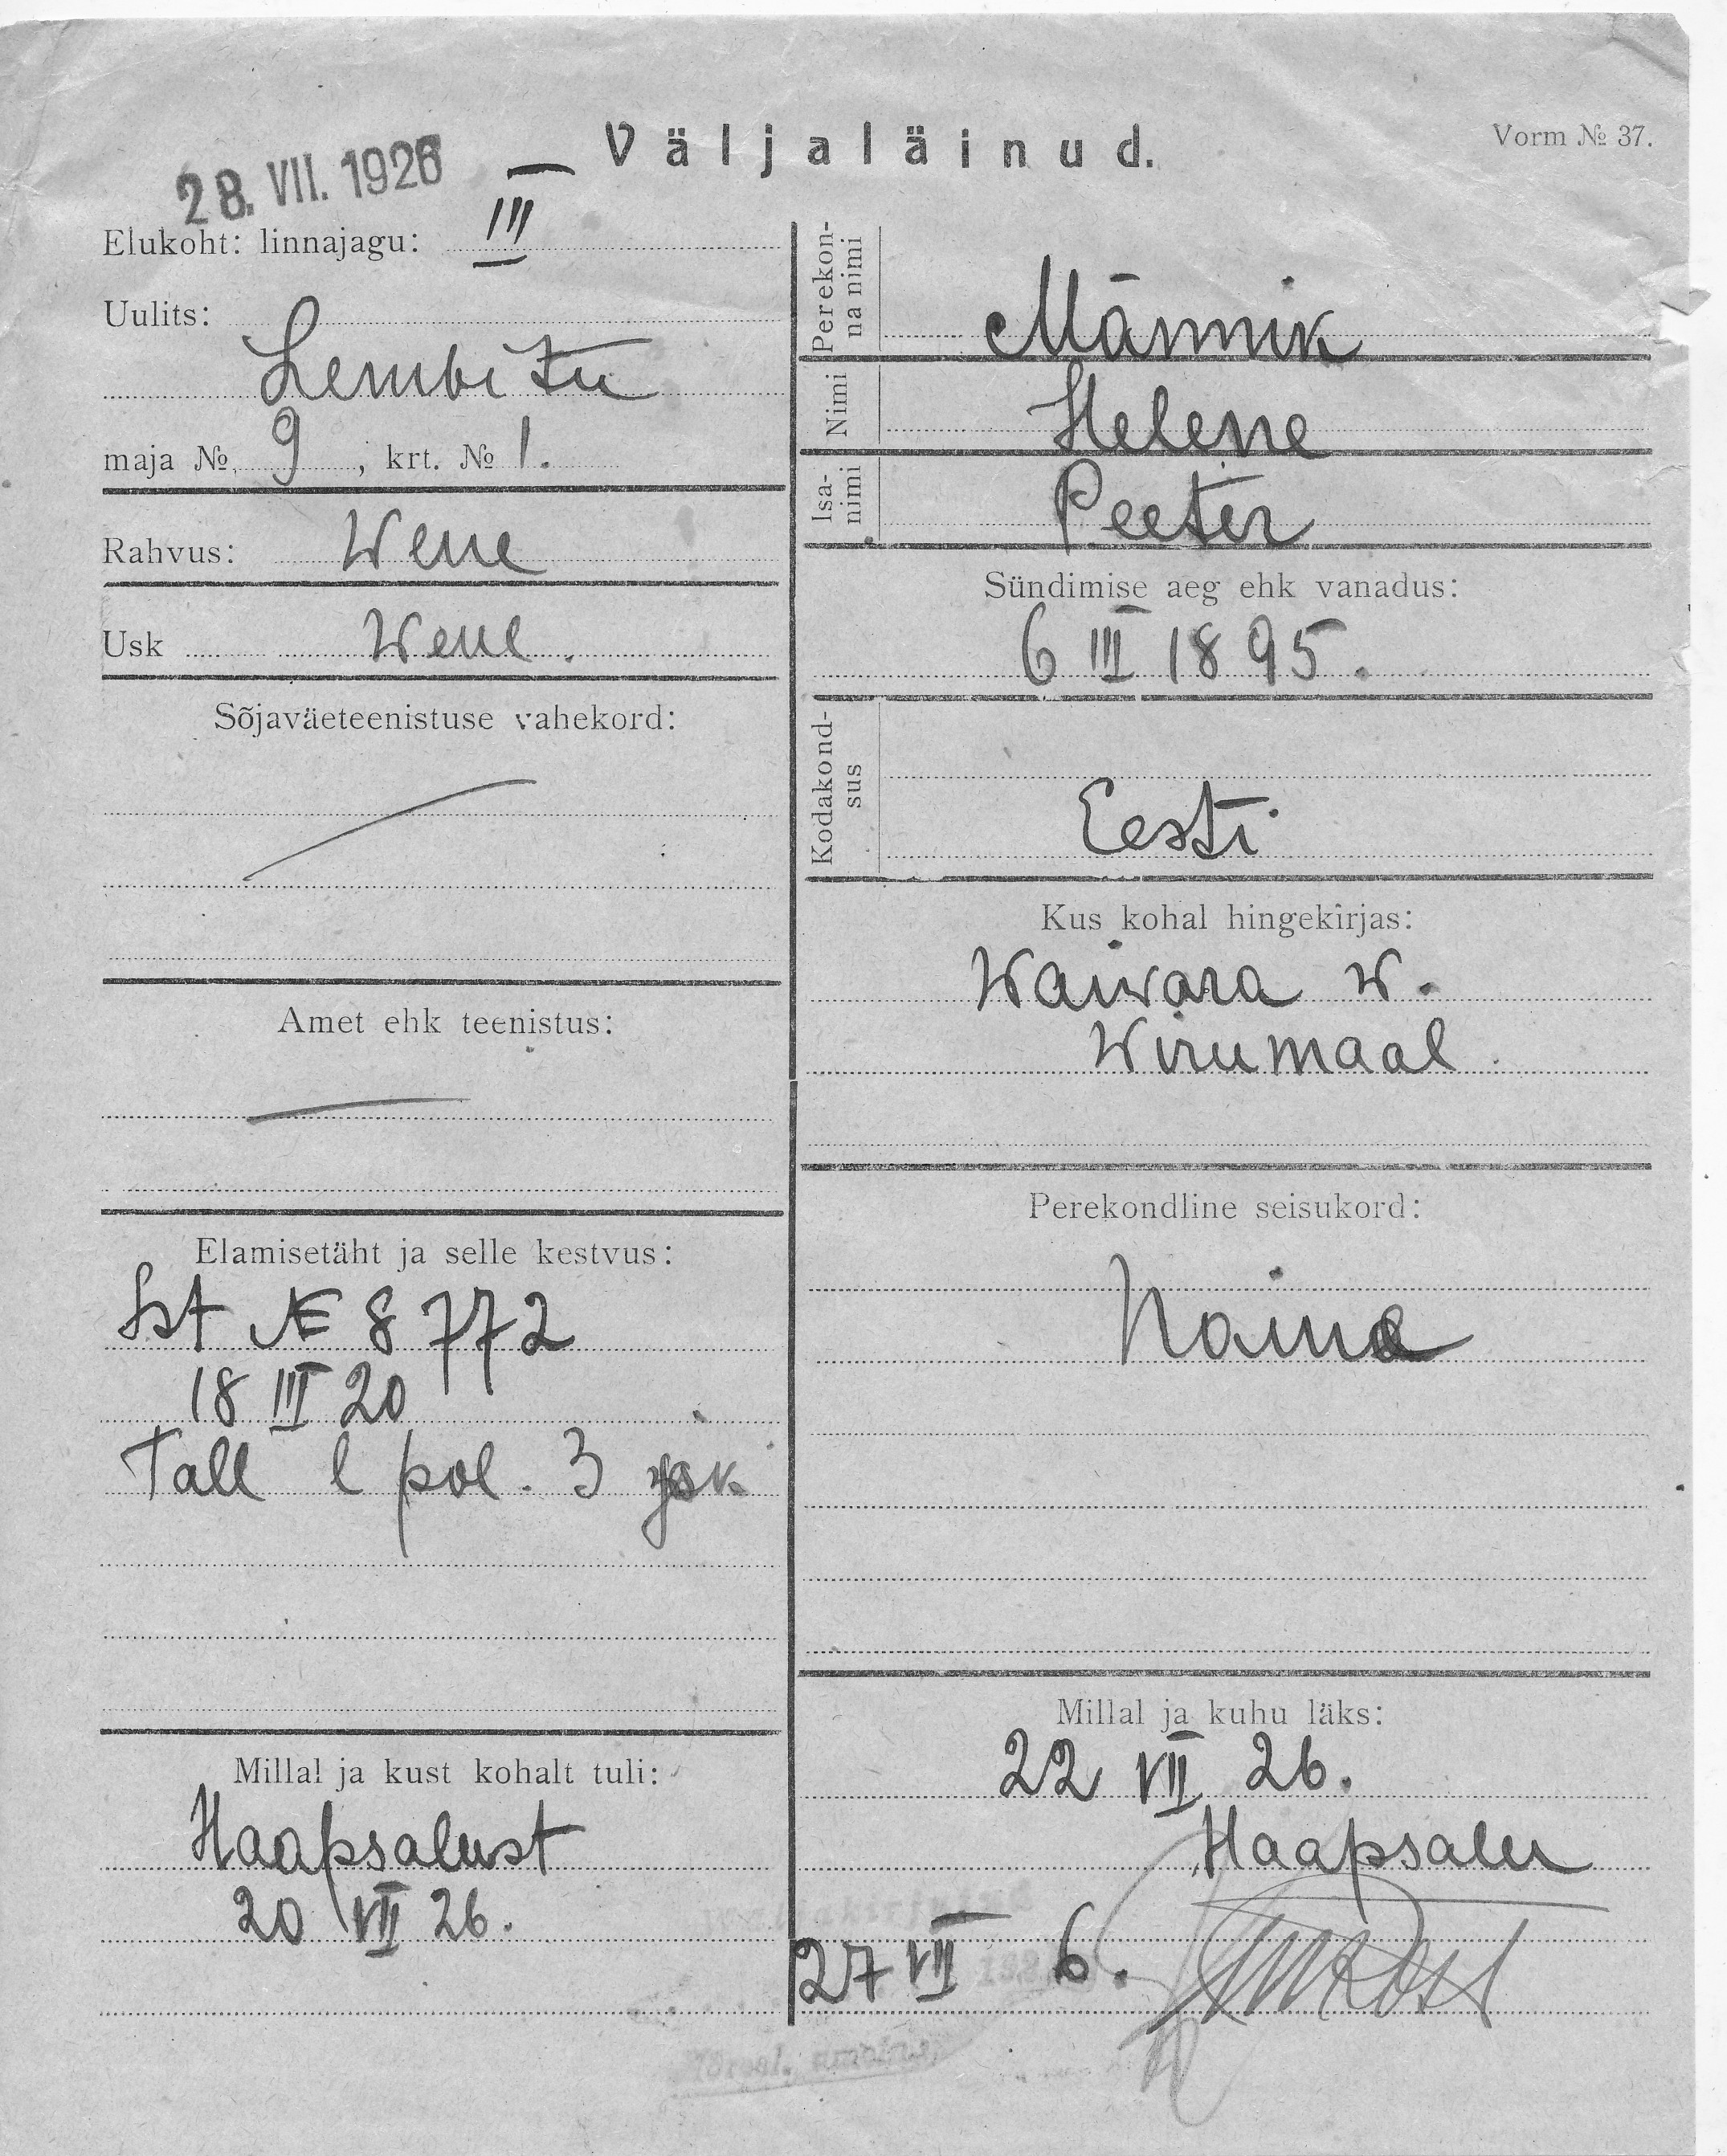 Väljaläinud.
Vorm № 37.
28. VII. 1926
Elukoht: linnajagu: III
Uulits:
Lembitu
maja № 9, krt. № 1.
Rahvus: Wene
Usk Wene.
Sõjaväeteenistuse vahekord:
Amet ehk teenistus:
Elamisetäht ja selle kestvus:
Ist № 8772
18 III 20
Tall l pol. 3 jsk
Millal ja kust kohalt tuli:
Haapsalust
20 VII 26.
Perekon-
na nimi
Männik
Nimi Helene
Isa-
nimi
Peeter
Sündimise aeg ehk vanadus:
6 III 1895.
Kodakond-
sus
Eesti
Kus kohal hingekirjas:
Waiwara w.
Wirumaal
Perekondline seisukord:
Naine
Millal ja kuhu läks:
22 VII 26.
Haapsalu
27 VII 6.